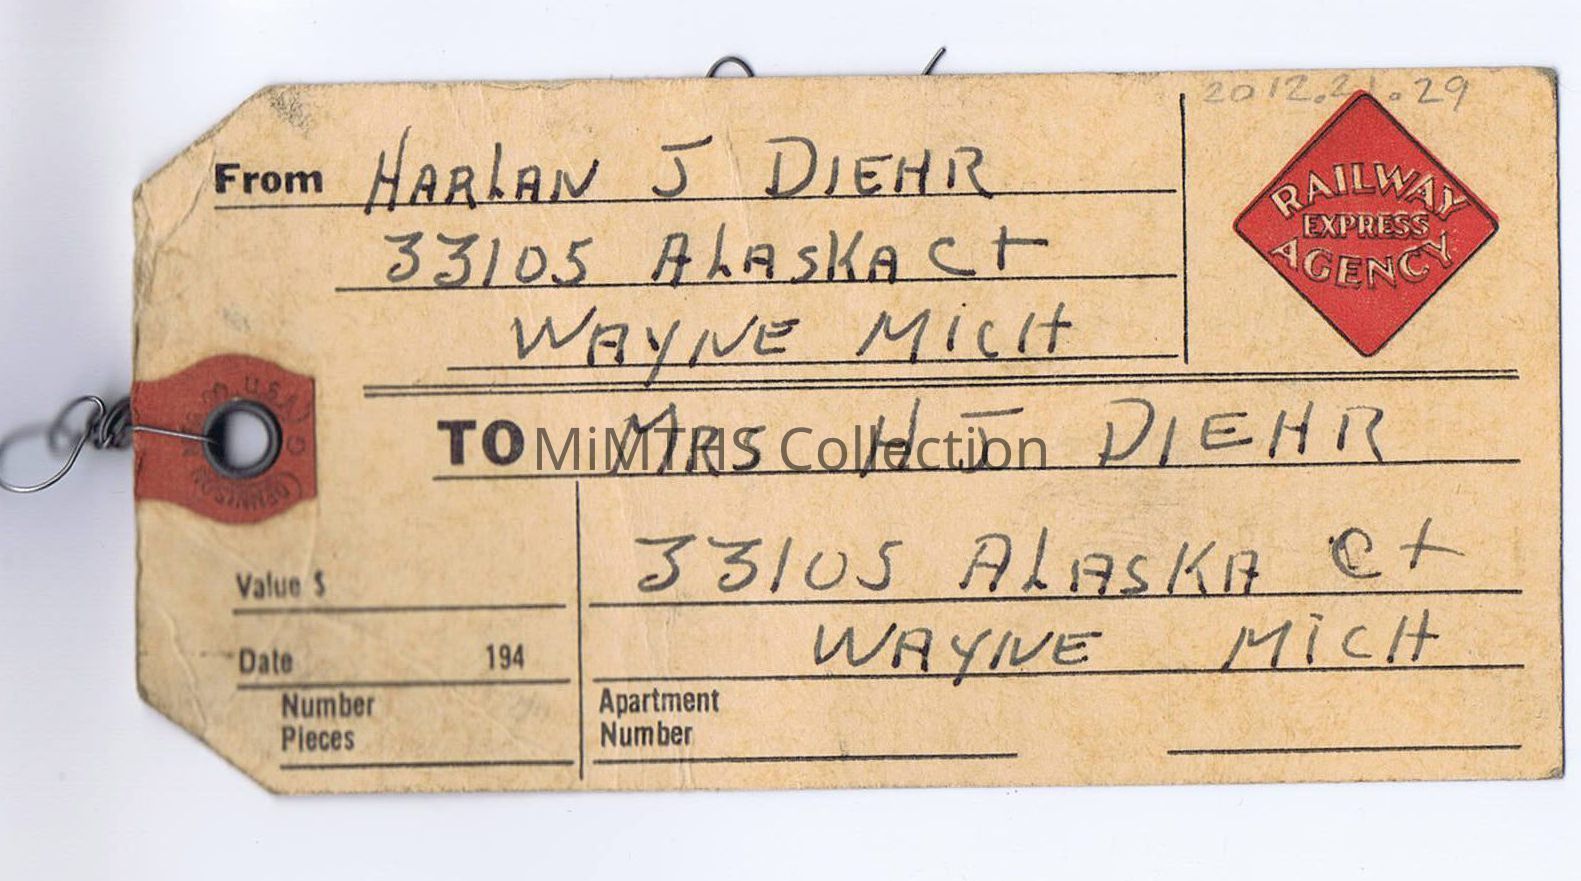 2012.21.29
From HARLAN J DIEHR
33105 ALASKA Ct
WAYNE MICH
RAILWAY
EXPRESS
AGENCY
TO MRS H J DIEHR
MiMTHS Collection
33105 ALASKA Ct
WAYNE MICH
Value $
Date 194
Number
Pieces
Apartment
Number
U.S.A.
DENNISON